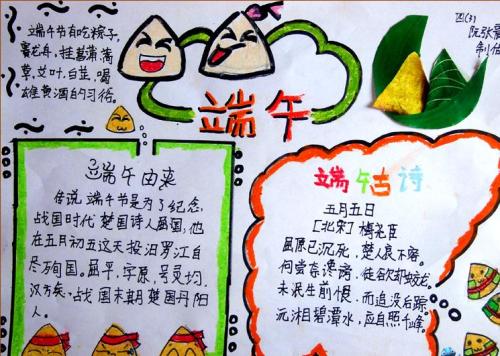 端午节有吃粽子,
赛龙舟,挂菖蒲,蒿
草,艾叶,白芷,喝
雄黄酒的习俗。
端午
四(3)
阮张
制作
端午由来
传说端午节是为了纪念,
战国时代楚国诗人屈国,他
在五月初五这天投汨罗江自
尽殉国。屈平,字原,号灵均.
汉族,战国末期楚国丹阳
人。
端午古诗
五月五日
[北宋]梅尧臣
屈原已沉死,楚人哀不容。
何尝奈谗谤,徒欲却蛟龙。
未泯生前恨,而追没后踪。
沅湘碧潭水,应自照千峰。